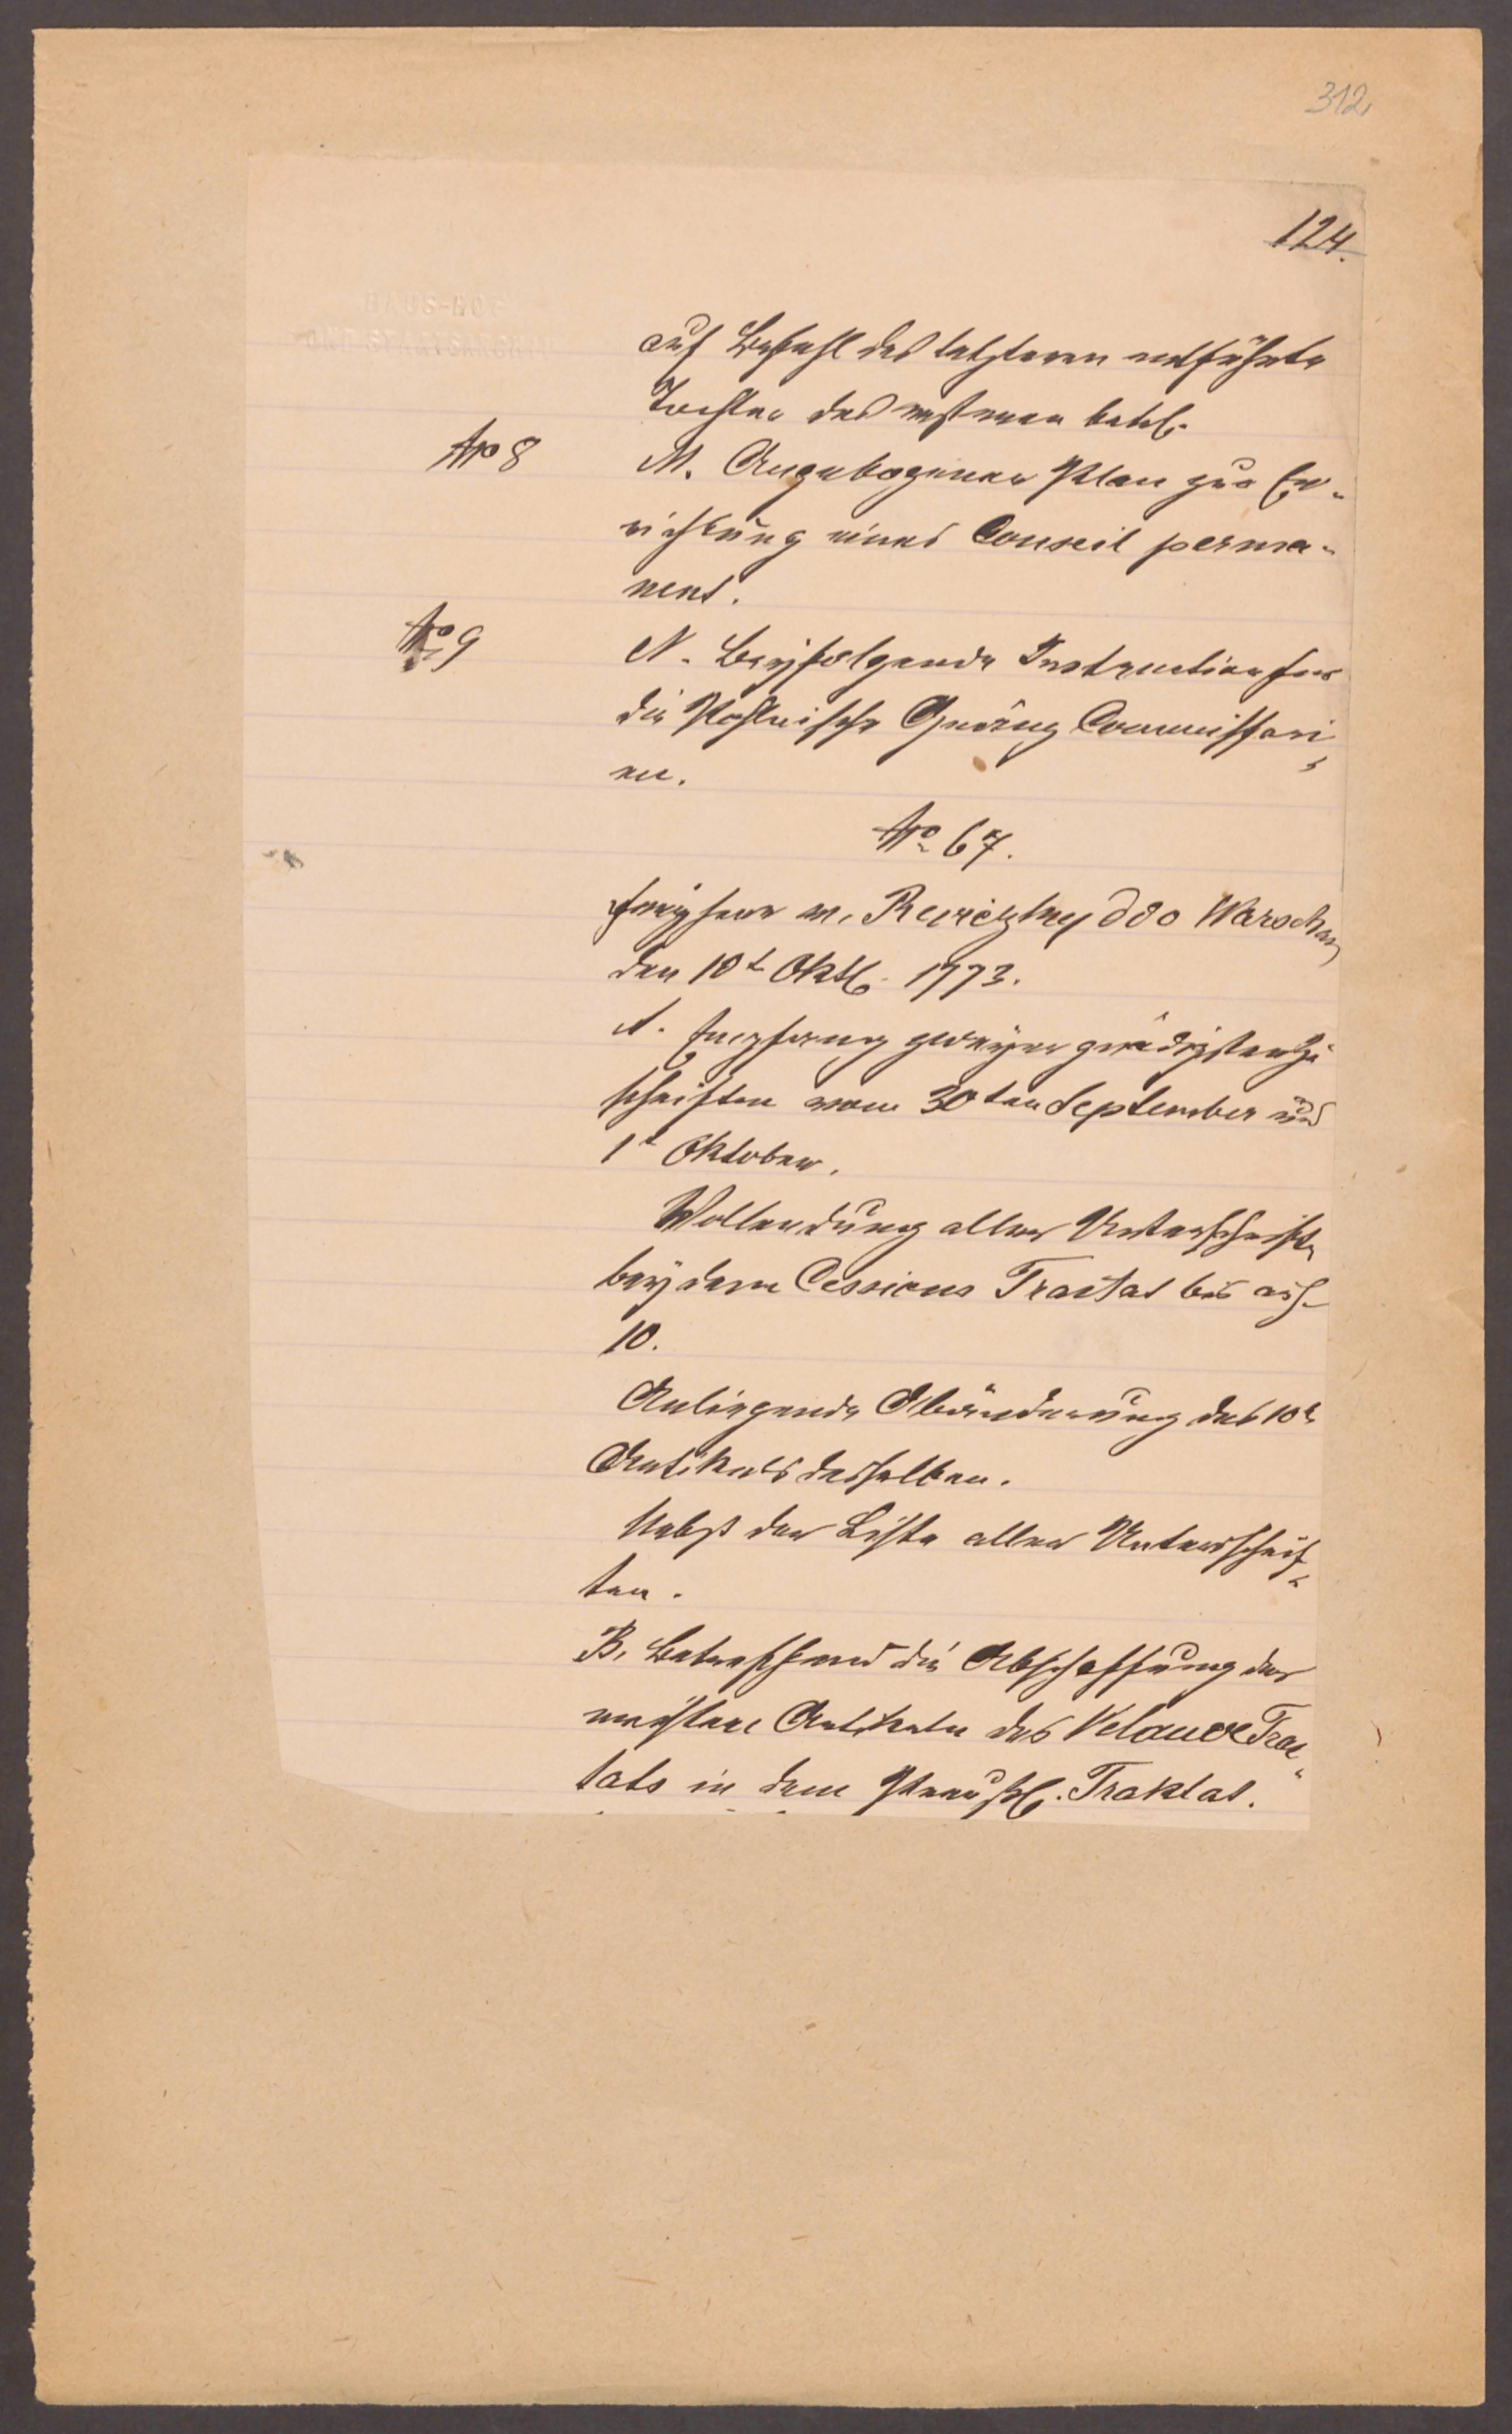 312
124.
HAUS-HOF
UND STAATSARCHIV
auf Befehl des letzteren entführte
Tochter des ersteren betrf.
No 8
M. Angebogener Plan zur Er-
richtung eines Conseil perma-
nent.
No 9
N. Beyfolgende Instruction für
die Pohlnische Gränz Commissari,
en.
No 67.
Freyherr v. Reviczky ddo Warschau
den 10t Oktb. 1773.
A. Empfang zweyer gnädigsten Zu
schriften vom 30ten September und
1t Oktober.
Vollendung aller Unterschriften
bey dem Cessions Tractat bis auf
10.
Anliegende Abänderung des 10t
Artikels desselben.
Nebst der Liste aller Unterschrif-
ten.
B. Betreffend die Abschaffung der
meisten Artikeln des Velauer Trac-
tats in dem Preußh. Traktat.